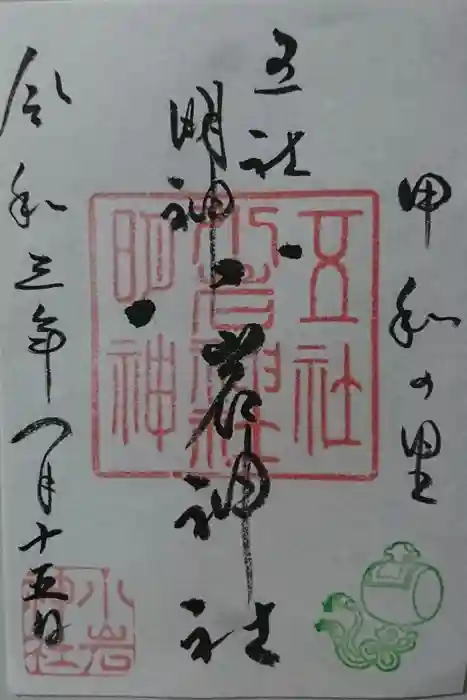 甲和の里
五社
明神
小岩神社
令和三年八月十五日
五社
小岩神社
明神
小岩
神社